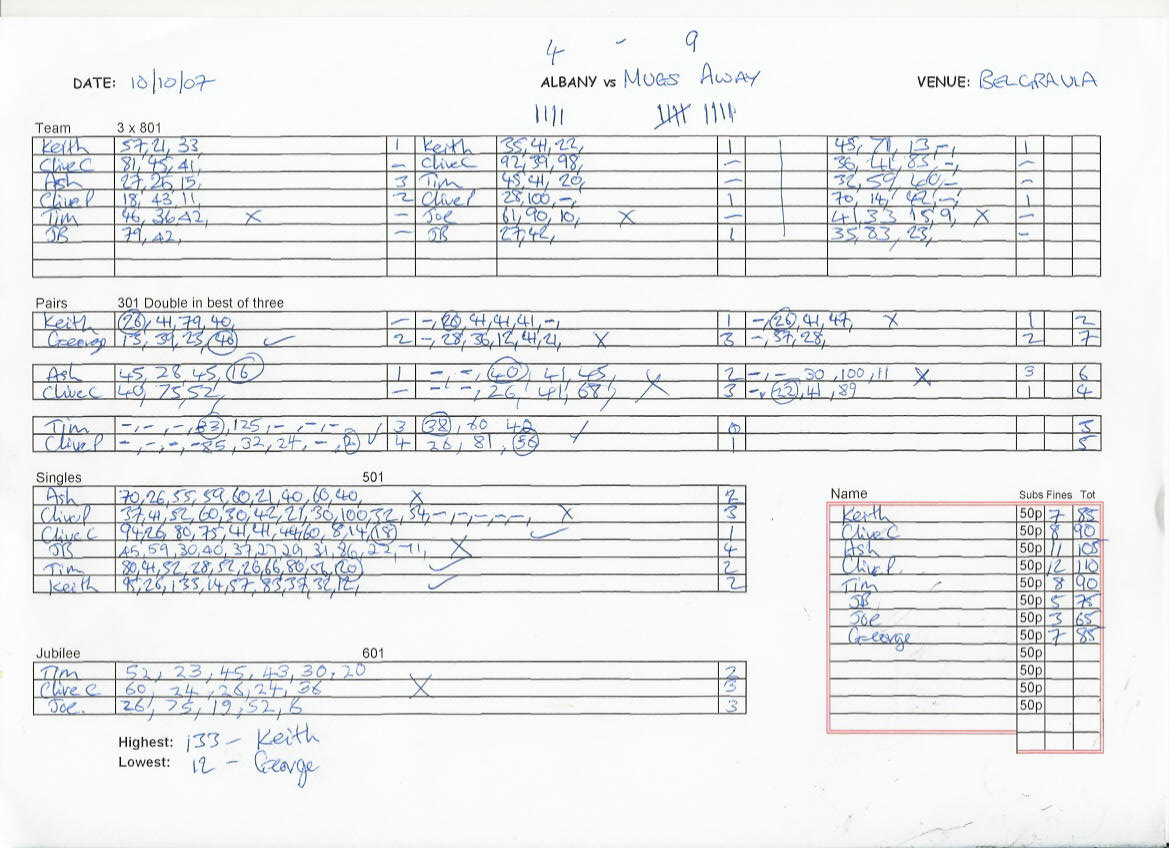 4 - 9
DATE: 10/10/07 ALBANY vs MUGS AWAY VENUE: BELGRAVIA
Team 3 x 801
Keith 57, 21, 33, 1 Keith 35, 41, 22, 1 45, 71, 13, -, 1
Clive C 81, 45, 41, - Clive C 92, 39, 98, - 36, 41, 85, -, -
Ash 27, 26, 15, 3 Tim 45, 41, 20, - 32, 59, 60, - -
Clive P 18, 43, 11, 2 Clive P 28, 100, -, 1 70, 14, 42, -, 1
Tim 46, 36, 42, X - Joe 61, 90, 10, X - 41, 33, 15, 9, X -
JB 79, 42, - JB 27, 42, 1 35, 83, 23, -
Pairs 301 Double in best of three
Keith 26, 41, 79, 40, - -, 20, 41, 41, 41, -, 1 -, 26, 41, 47, X 1 2
George 13, 39, 23, 40 ✓ 2 -, 28, 36, 12, 41, 21, X 3 -, 37, 28, 2 7
Ash 45, 28, 45, 16 1 -, -, 40, 41, 45, 2 -, -, 30, 100, 11 X 3 6
Clive C 40, 75, 52, - -, -, 26, 41, 68, X 3 -, 32, 41, 89 1 4
Tim -, -, -, 83, 125, -, -, -, ✓ 3 38, 60, 42 ✓ 0 3
Clive P -, -, -, 85, 32, 24, -, 2 4 26, 81, 56 1 5
Singles 501
Ash 70, 26, 55, 59, 60, 21, 40, 60, 40, X 2
Clive P 37, 41, 52, 60, 30, 42, 21, 30, 100, 32, 34, -, -, -, -, -, X 3
Clive C 94, 26, 80, 75, 41, 41, 44, 60, 8, 14, 18 ✓ 1
JB 45, 59, 30, 40, 37, 27, 29, 31, 86, 22, 71, X 4
Tim 80, 41, 52, 28, 52, 26, 66, 80, 56, 20 ✓ 2
Keith 95, 26, 133, 14, 57, 85, 37, 32, 12, ✓ 2
Name Subs Fines Tot
Keith 50p 7 85
Clive C 50p 8 90
Ash 50p 11 105
Clive P 50p 12 110
Tim 50p 8 90
JB 50p 5 75
Joe 50p 3 65
George 50p 7 85
50p
50p
50p
50p
Jubilee 601
Tim 52, 23, 45, 43, 30, 20 2
Clive C 60, 24, 26, 24, 36 X 3
Joe 26, 75, 19, 52, 6 3
Highest: 133 - Keith
Lowest: 12 - George